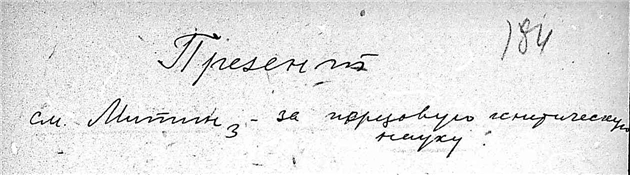 184
Презент
см. Митин 3 - за передовую генетическую
науку.